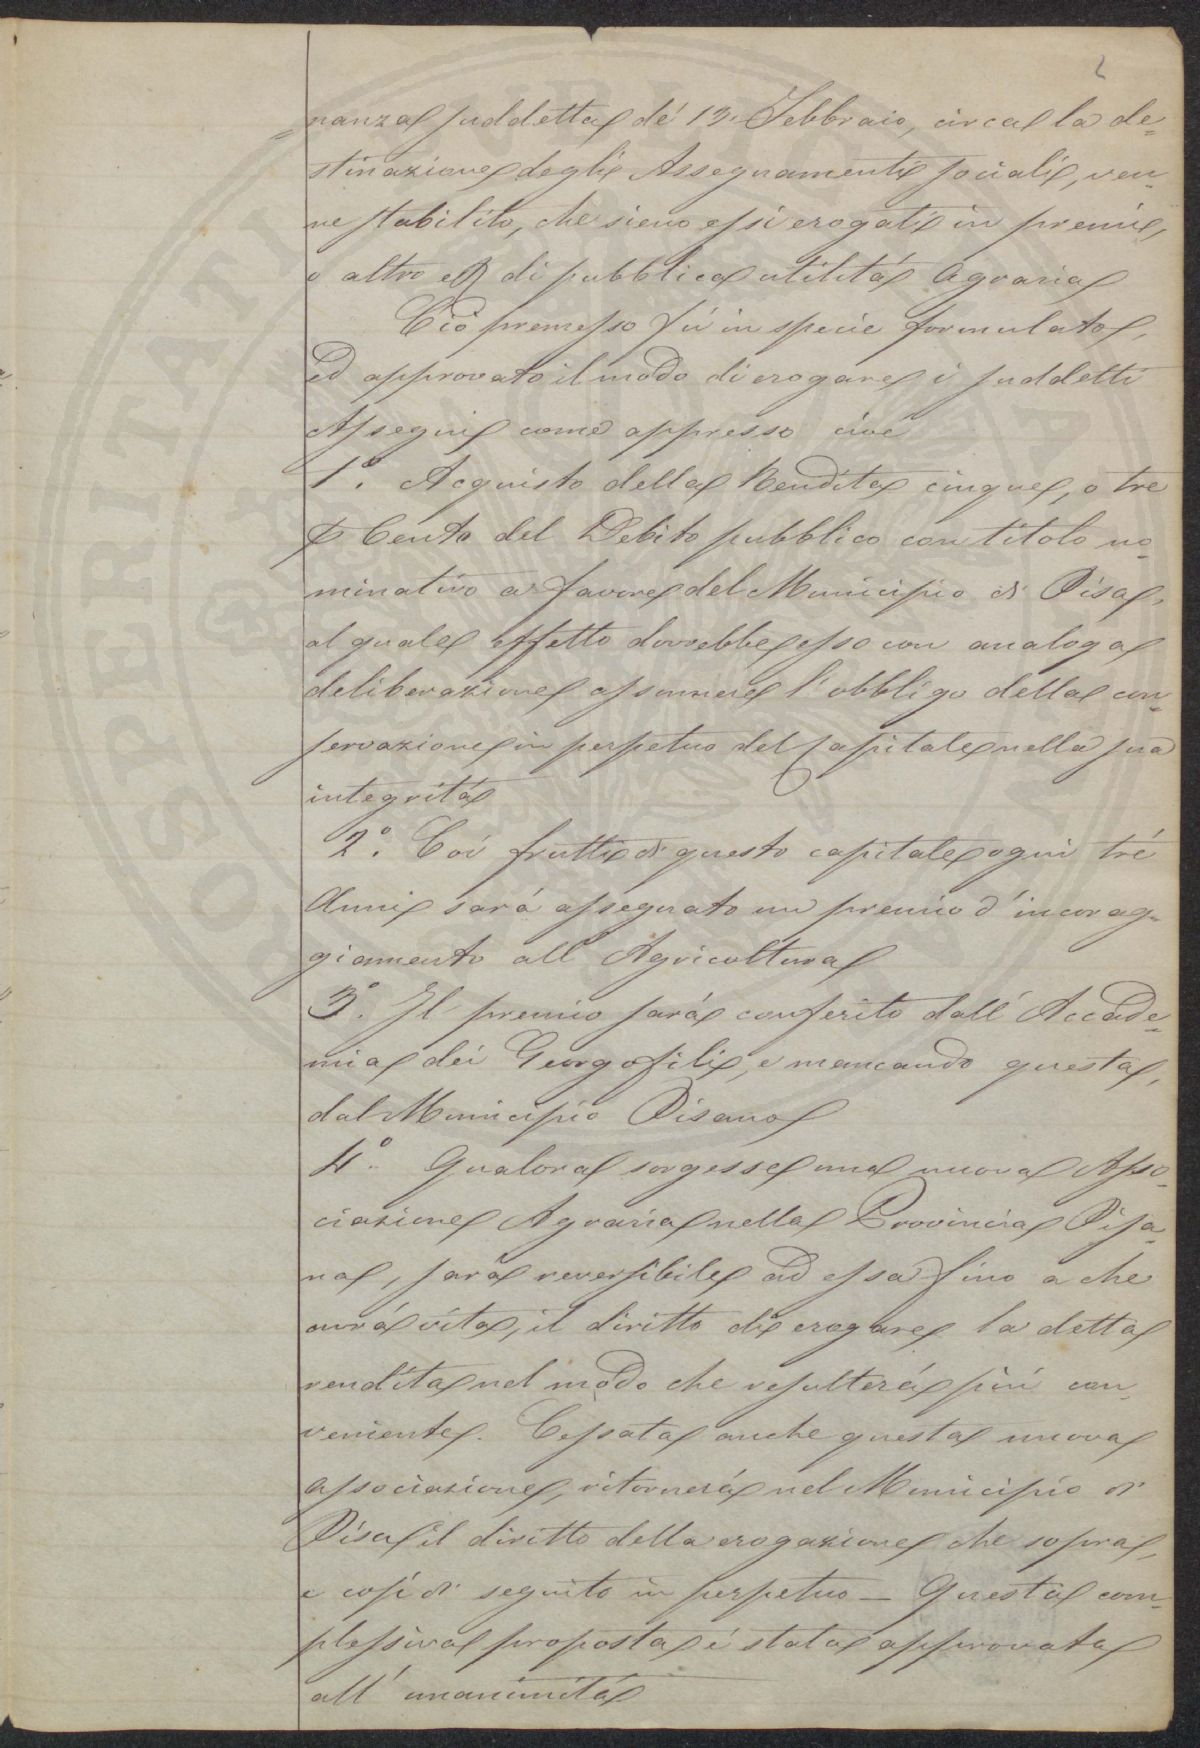 2
=nanza suddetta dé 13. Febbraio, circa la de=
stinazione degli Assegnamenti sociali, ven=
ne stabilito, che sieno essi erogati in premi,
o altro di pubblica utilitá Agraria
Ció premesso fú in specie formulato,
ed approvato il modo di erogare i suddetti
Assegni come appresso cioé
1°. Acquisto della Rendita cinque, o tre
p Cento del Debito pubblico con titolo no=
minativo a favore del Municipio di Pisa,
al quale effetto dovrebbe esso con analoga
deliberazione assumere l'obbligo della con=
servazione in perpetuo del Capitale nella sua
integritá
2°. Coi frutti di questo capitale ogni tré
Anni sará assegnato un premio d'incorag=
giamento all' Agricoltura
3°. Il premio sará conferito dall' Accade=
mia dei Georgofili, e mancando questa,
dal Municipio Pisano
4°. Qualora sorgesse una nuova Asso=
ciazione Agraria nella Provincia Pisa=
na, sará reversibile ad essa fino a che
avrá vita, il diritto di erogare la detta
rendita nel modo che resulterá piú con=
veniente. Cessata anche questa nuova
associazione, ritornerá nel Municipio di
Pisa il diritto della erogazione che sopra,
e cosí di seguito in perpetuo — Questa com=
plessiva proposta é stata approvata
all' unanimitá
PROSPERITATI PUBLICAE